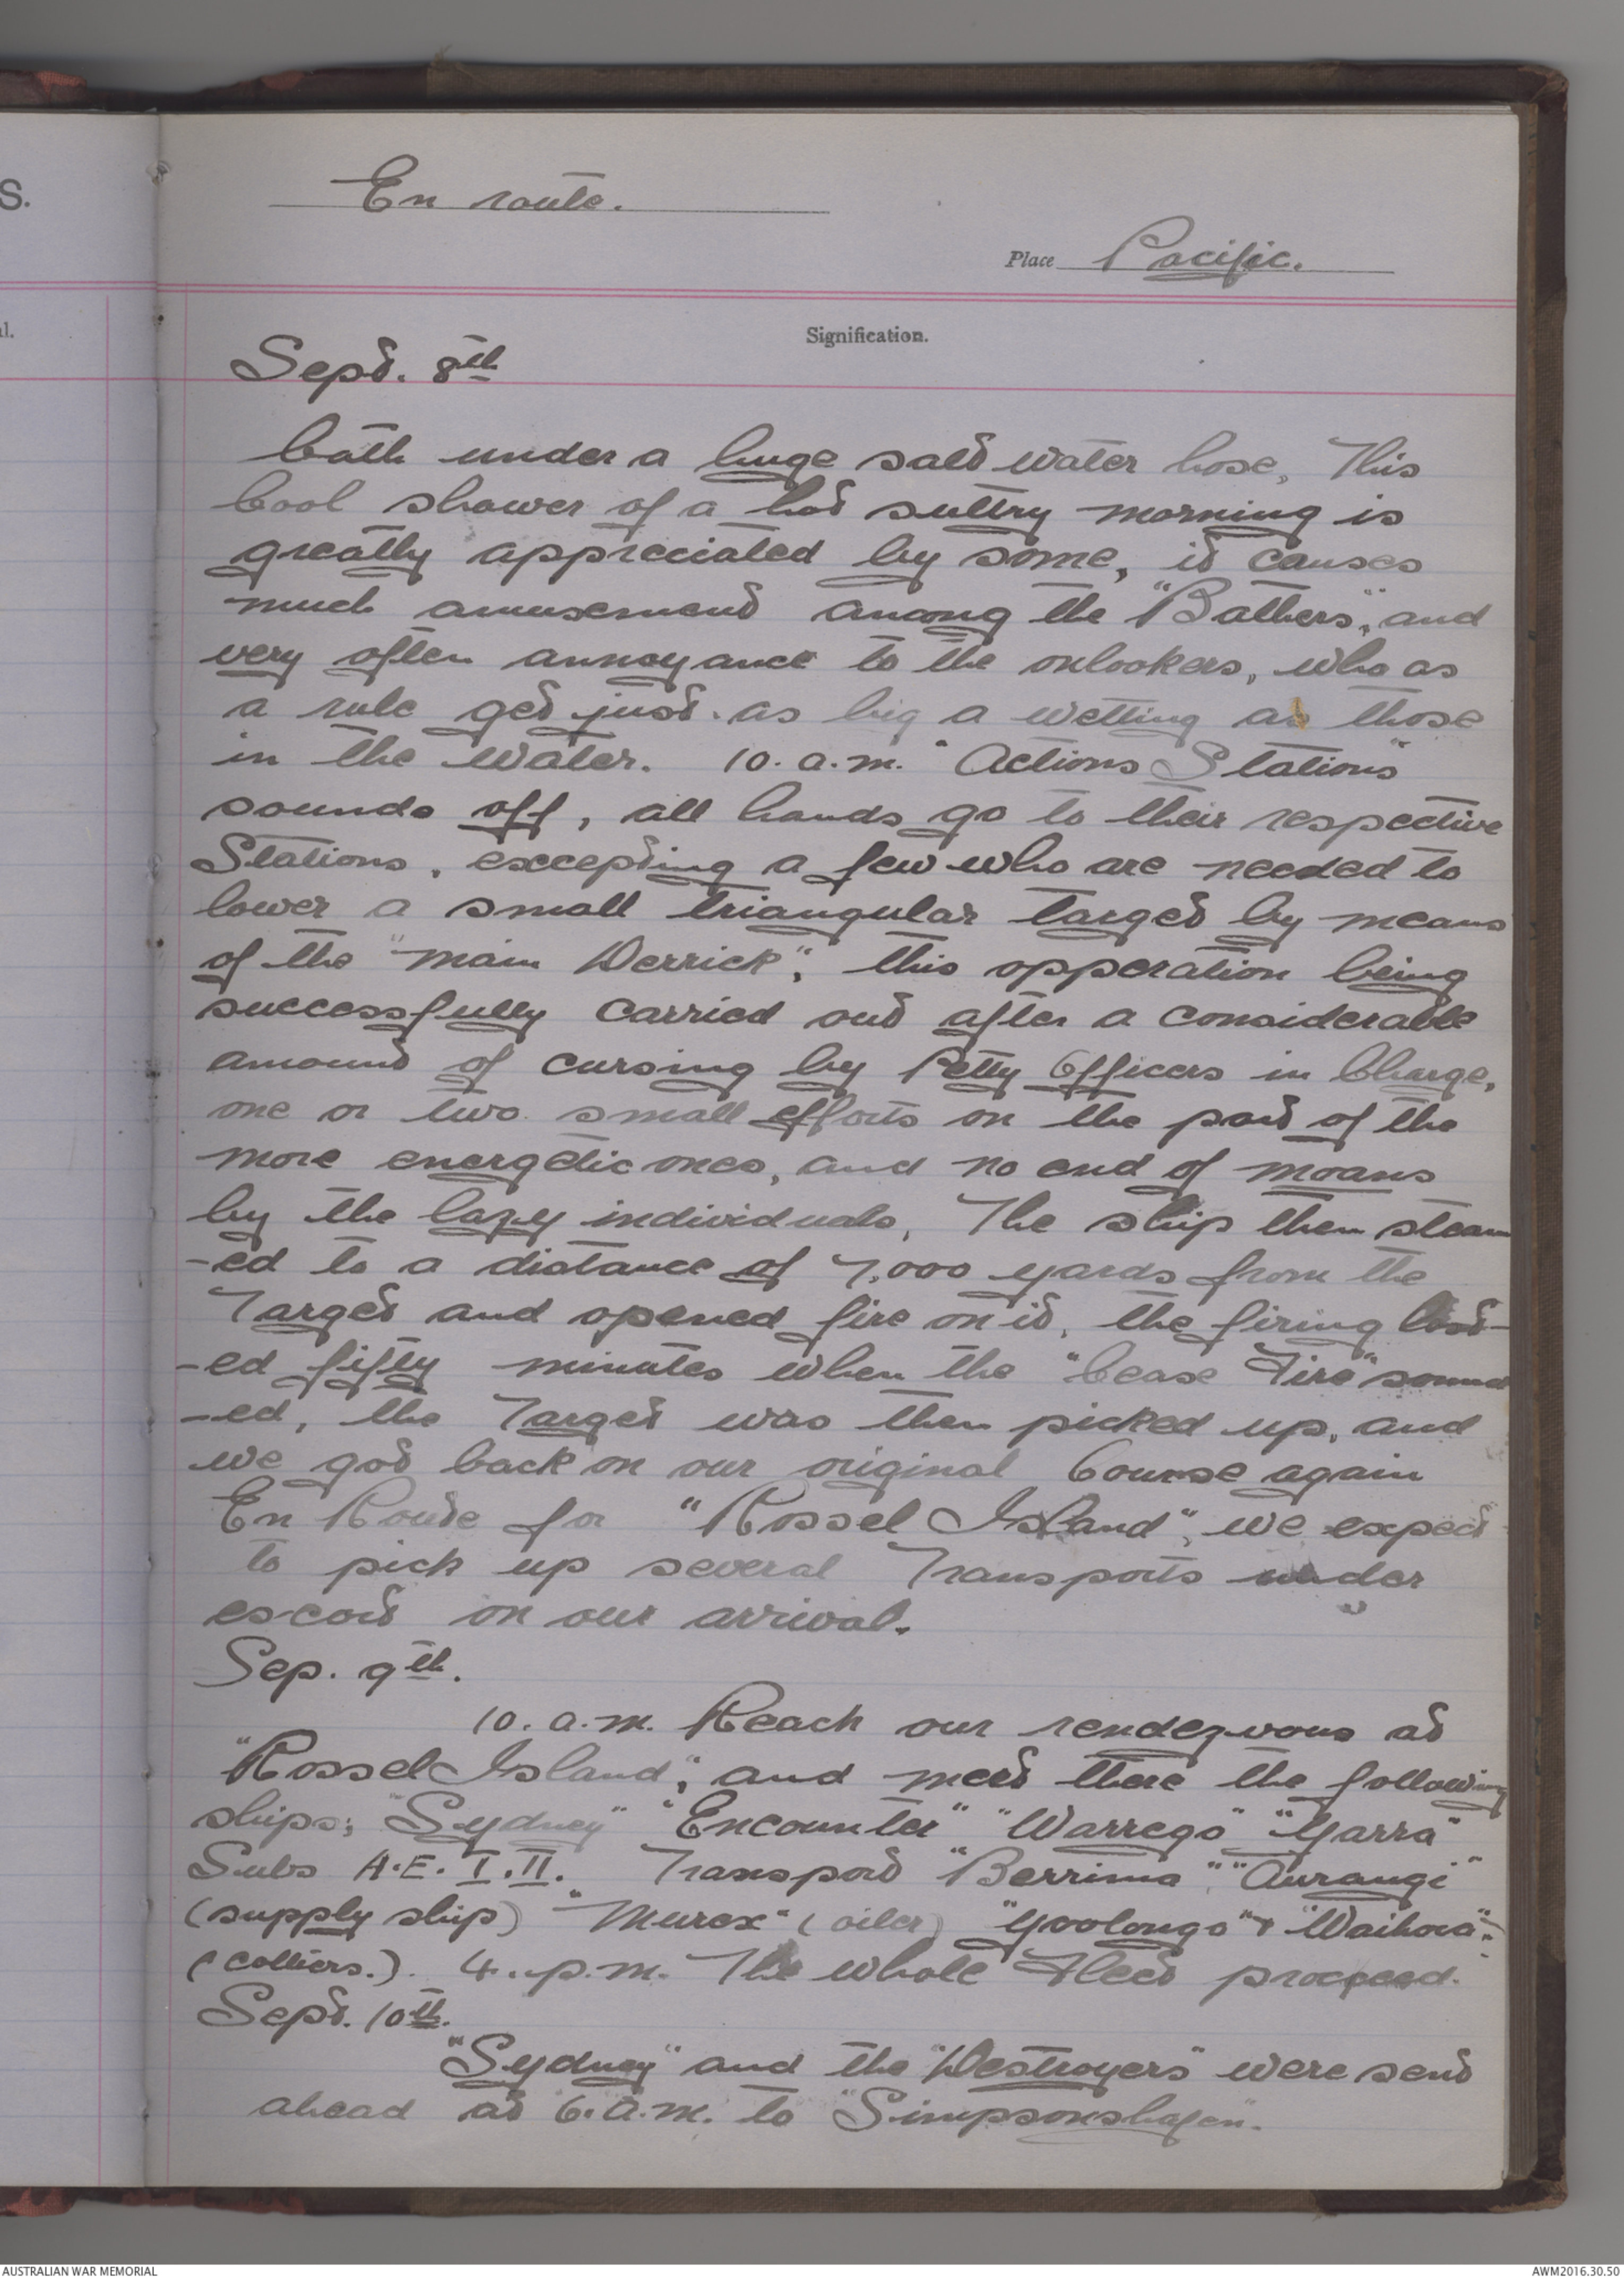 S.
al.
En route.
Place Pacific.
Signification.
Sept. 8th
bath under a huge salt water hose, This
Cool shower of a hot sultry morning is
greatly appreciated by some, it causes
much amusement among the "Bathers", and
very often annoyance to the onlookers, who as
a rule get just as big a wetting as those
in the Water. 10. a.m. "Actions Stations"
sounds off, all hands go to their respective
Stations, excepting a few who are needed to
lower a small triangular target by means
of the "main Derrick", this opperation being
successfully Carried out after a considerable
amount of cursing by Petty Officers in Charge,
one or two small efforts on the part of the
more energetic ones, and no end of moans
by the lazy individuals, The ship then steam
-ed to a distance of 7,000 yards from the
Target and opened fire on it, the firing last-
-ed fifty minutes when the "Cease Fire" sound
-ed, the Target was then picked up, and
we got back on our original Course again
En Route for "Rossel Island", we expect
to pick up several Transports under
escort on our arrival.
Sep. 9th.
10. a.m. Reach our rendezvous at
"Rossel Island", and meet there the following
ships; "Sydney" "Encounter" "Warrego" "Yarra"
Subs A.E. I. II. Transport "Berrima", "Aorangi"
(supply ship) "Murex" (oiler) "Yoolonga" + "Waihora".
(colliers.). 4. p.m. The whole Fleet proceed.
Sept. 10th.
"Sydney" and the "Destroyers" were sent
ahead at 6. a.m. to "Simpsonshafen".
AUSTRALIAN WAR MEMORIAL
AWM2016.30.50